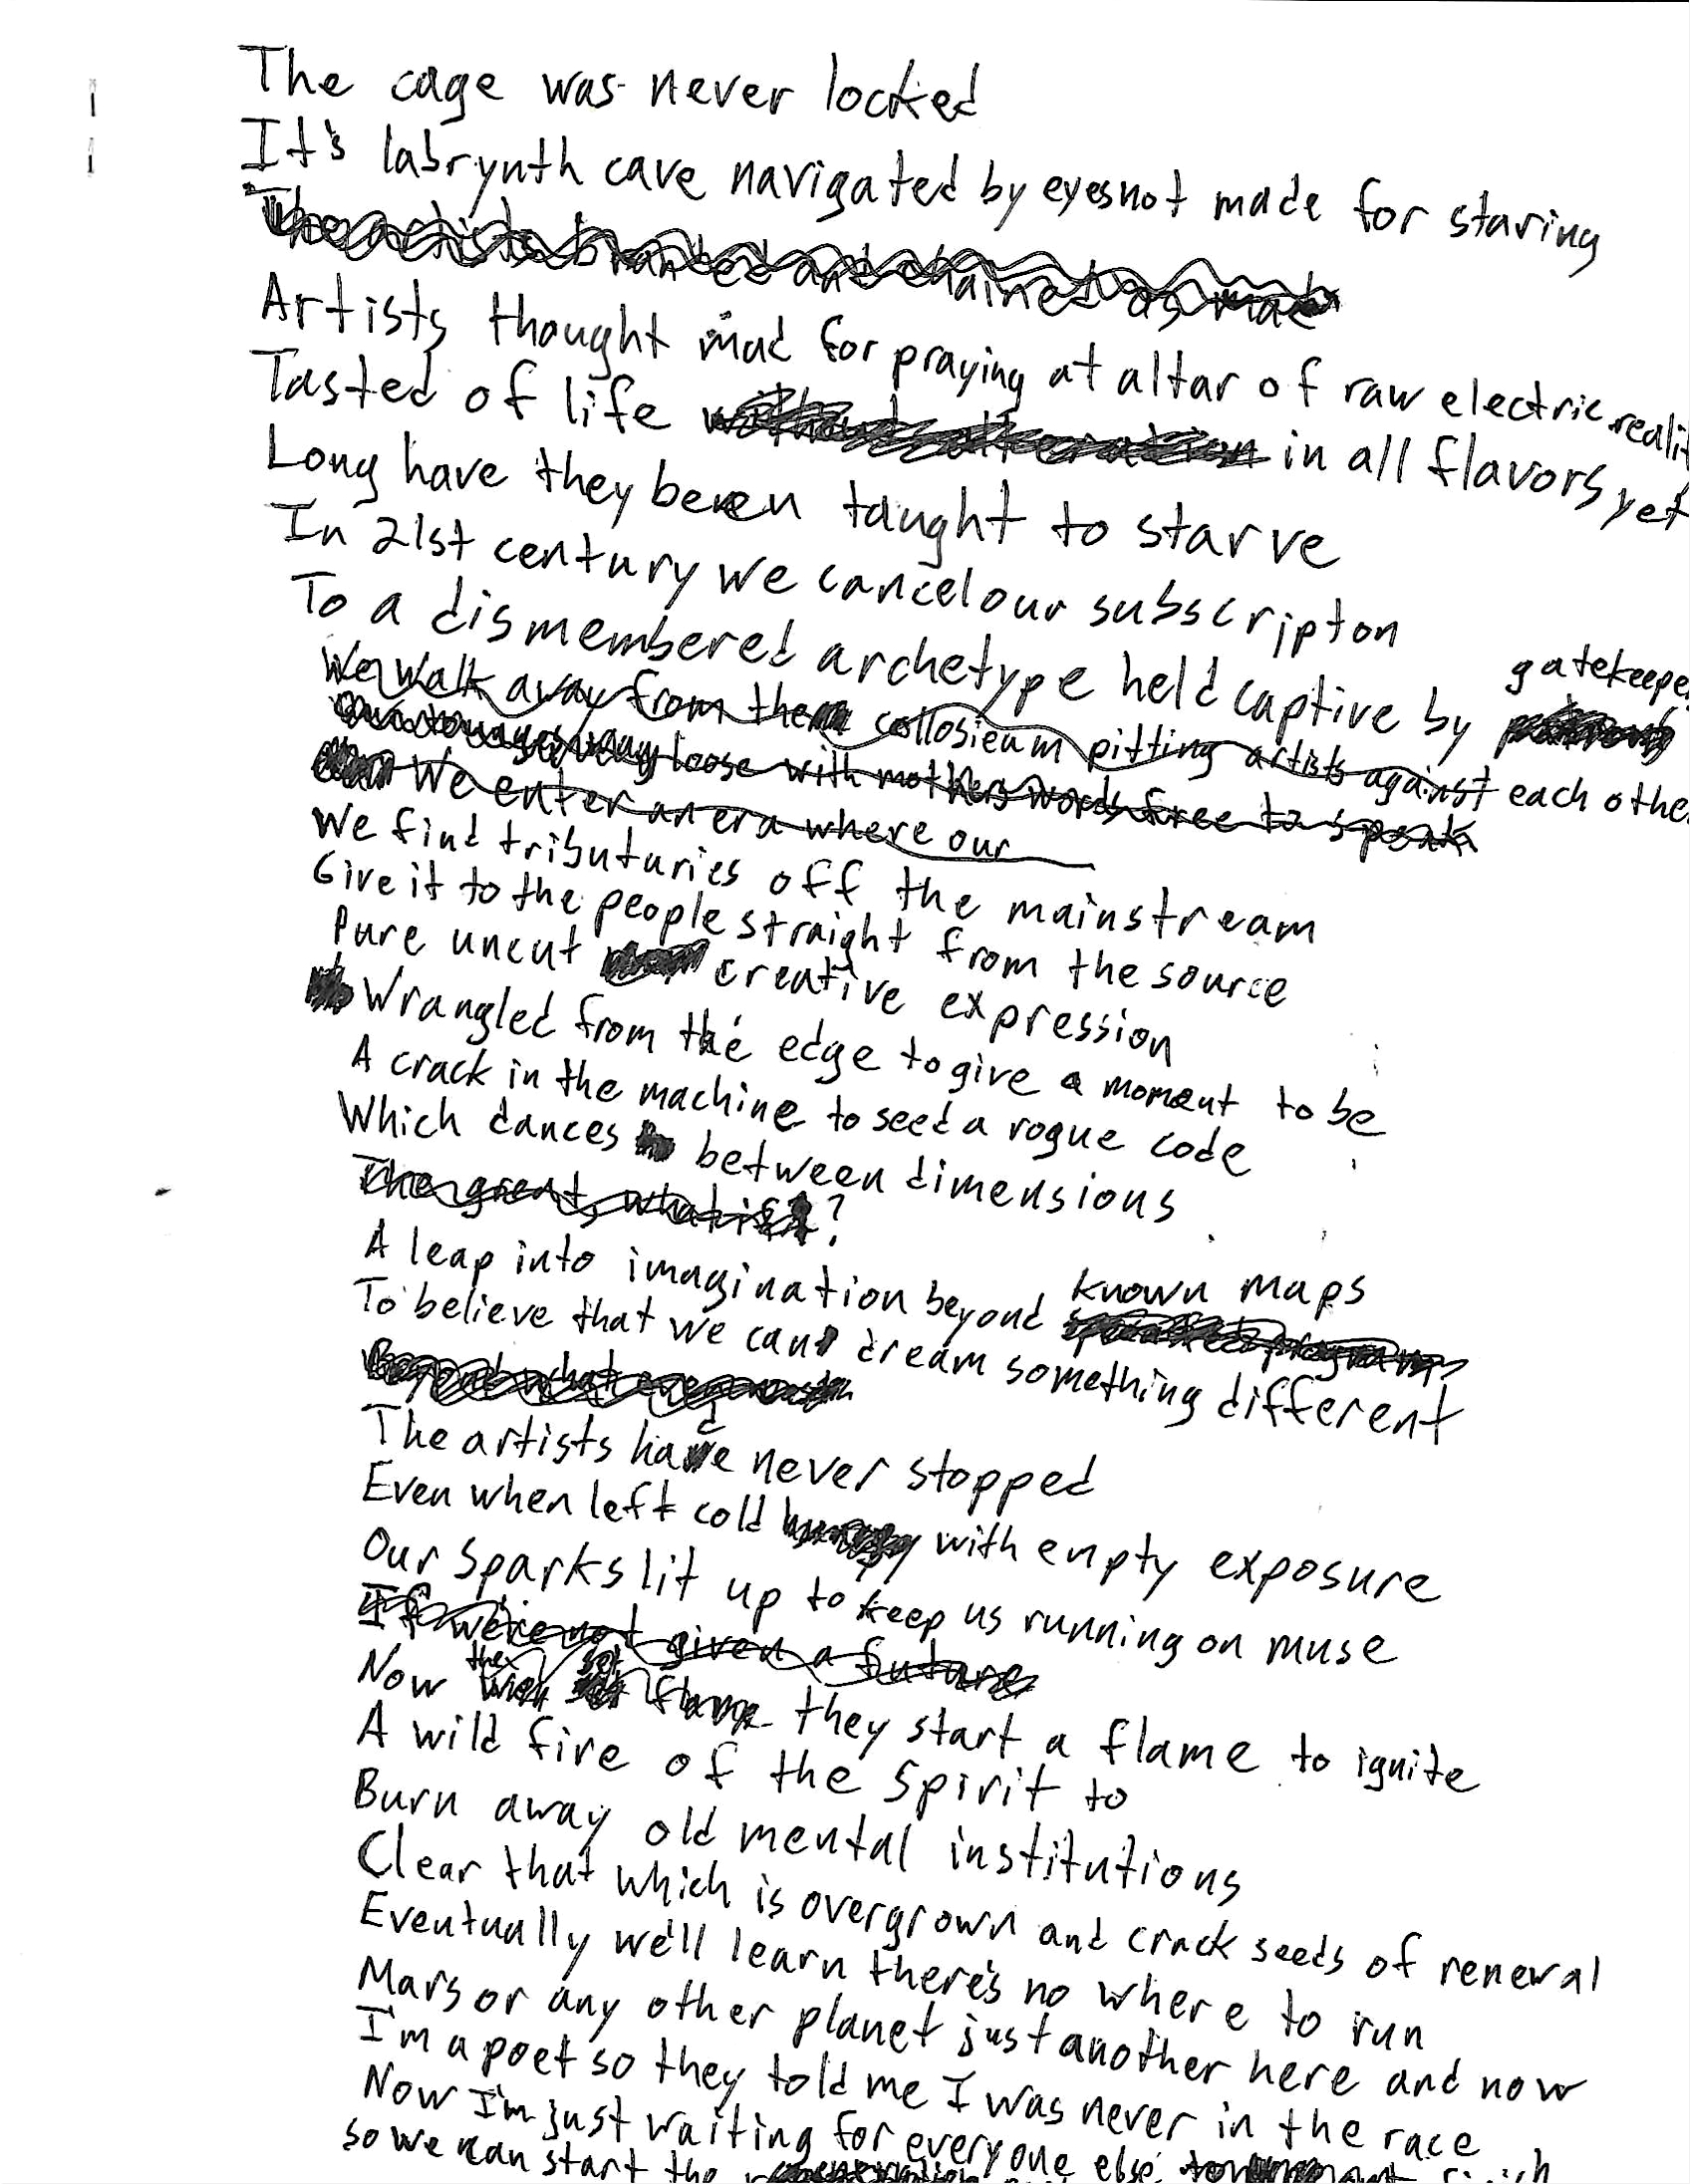 The cage was never locked
It's labrynth cave navigated by eyes not made for staring
The artists branded and chained as mad
Artists thought mad for praying at altar of raw electric realit
Tasted of life without alteration in all flavors yet
Long have they been taught to starve
In 21st century we cancel our subscripton
To a dismembered archetype held captive by gatekeepe
We walk away from the collosieum pitting artists against each othe
loose with mothers words free to speak
We enter an era where our
We find tributuries off the mainstream
Give it to the people straight from the source
Pure uncut creative expression
Wrangled from the edge to give a moment to be
A crack in the machine to seed a rogue code
Which dances between dimensions
The great what if?
A leap into imagination beyond known maps
To believe that we can dream something different
The artists had never stopped
Even when left cold hungry with empty exposure
Our sparks lit up to keep us running on muse
If we're not given a future
Now they start a flame to ignite
A wild fire of the spirit to
Burn away old mental institutions
Clear that which is overgrown and crack seeds of renewal
Eventually we'll learn there's no where to run
Mars or any other planet just another here and now
I'm a poet so they told me I was never in the race
Now I'm just waiting for everyone else
so we can start the